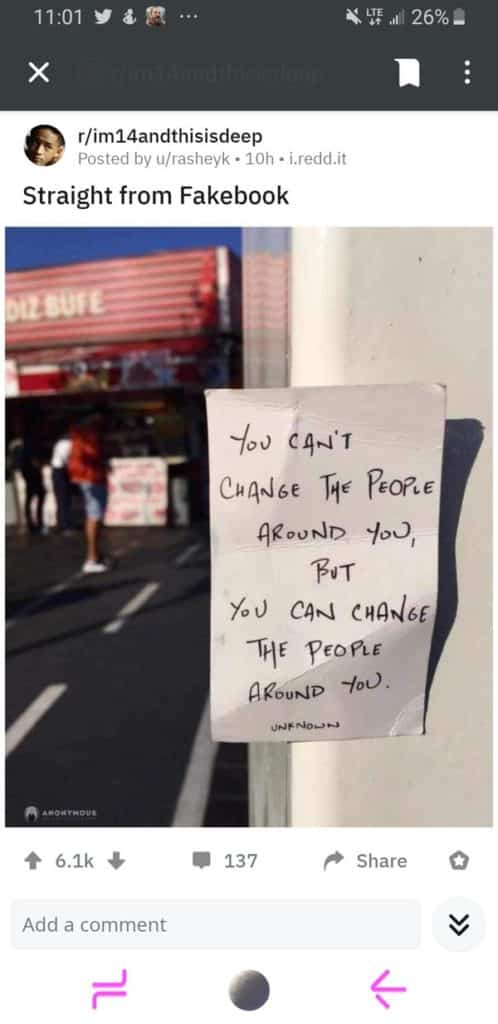 11:01
LTE
26%
r/im14andthisisdeep
r/im14andthisisdeep
Posted by u/rasheyk • 10h • i.redd.it
Straight from Fakebook
DIZ BUFE
YOU CAN'T
CHANGE THE PEOPLE
AROUND YOU,
BUT
YOU CAN CHANGE
THE PEOPLE
AROUND YOU.
UNKNOWN
ANONYMOUS
6.1k
137
Share
Add a comment